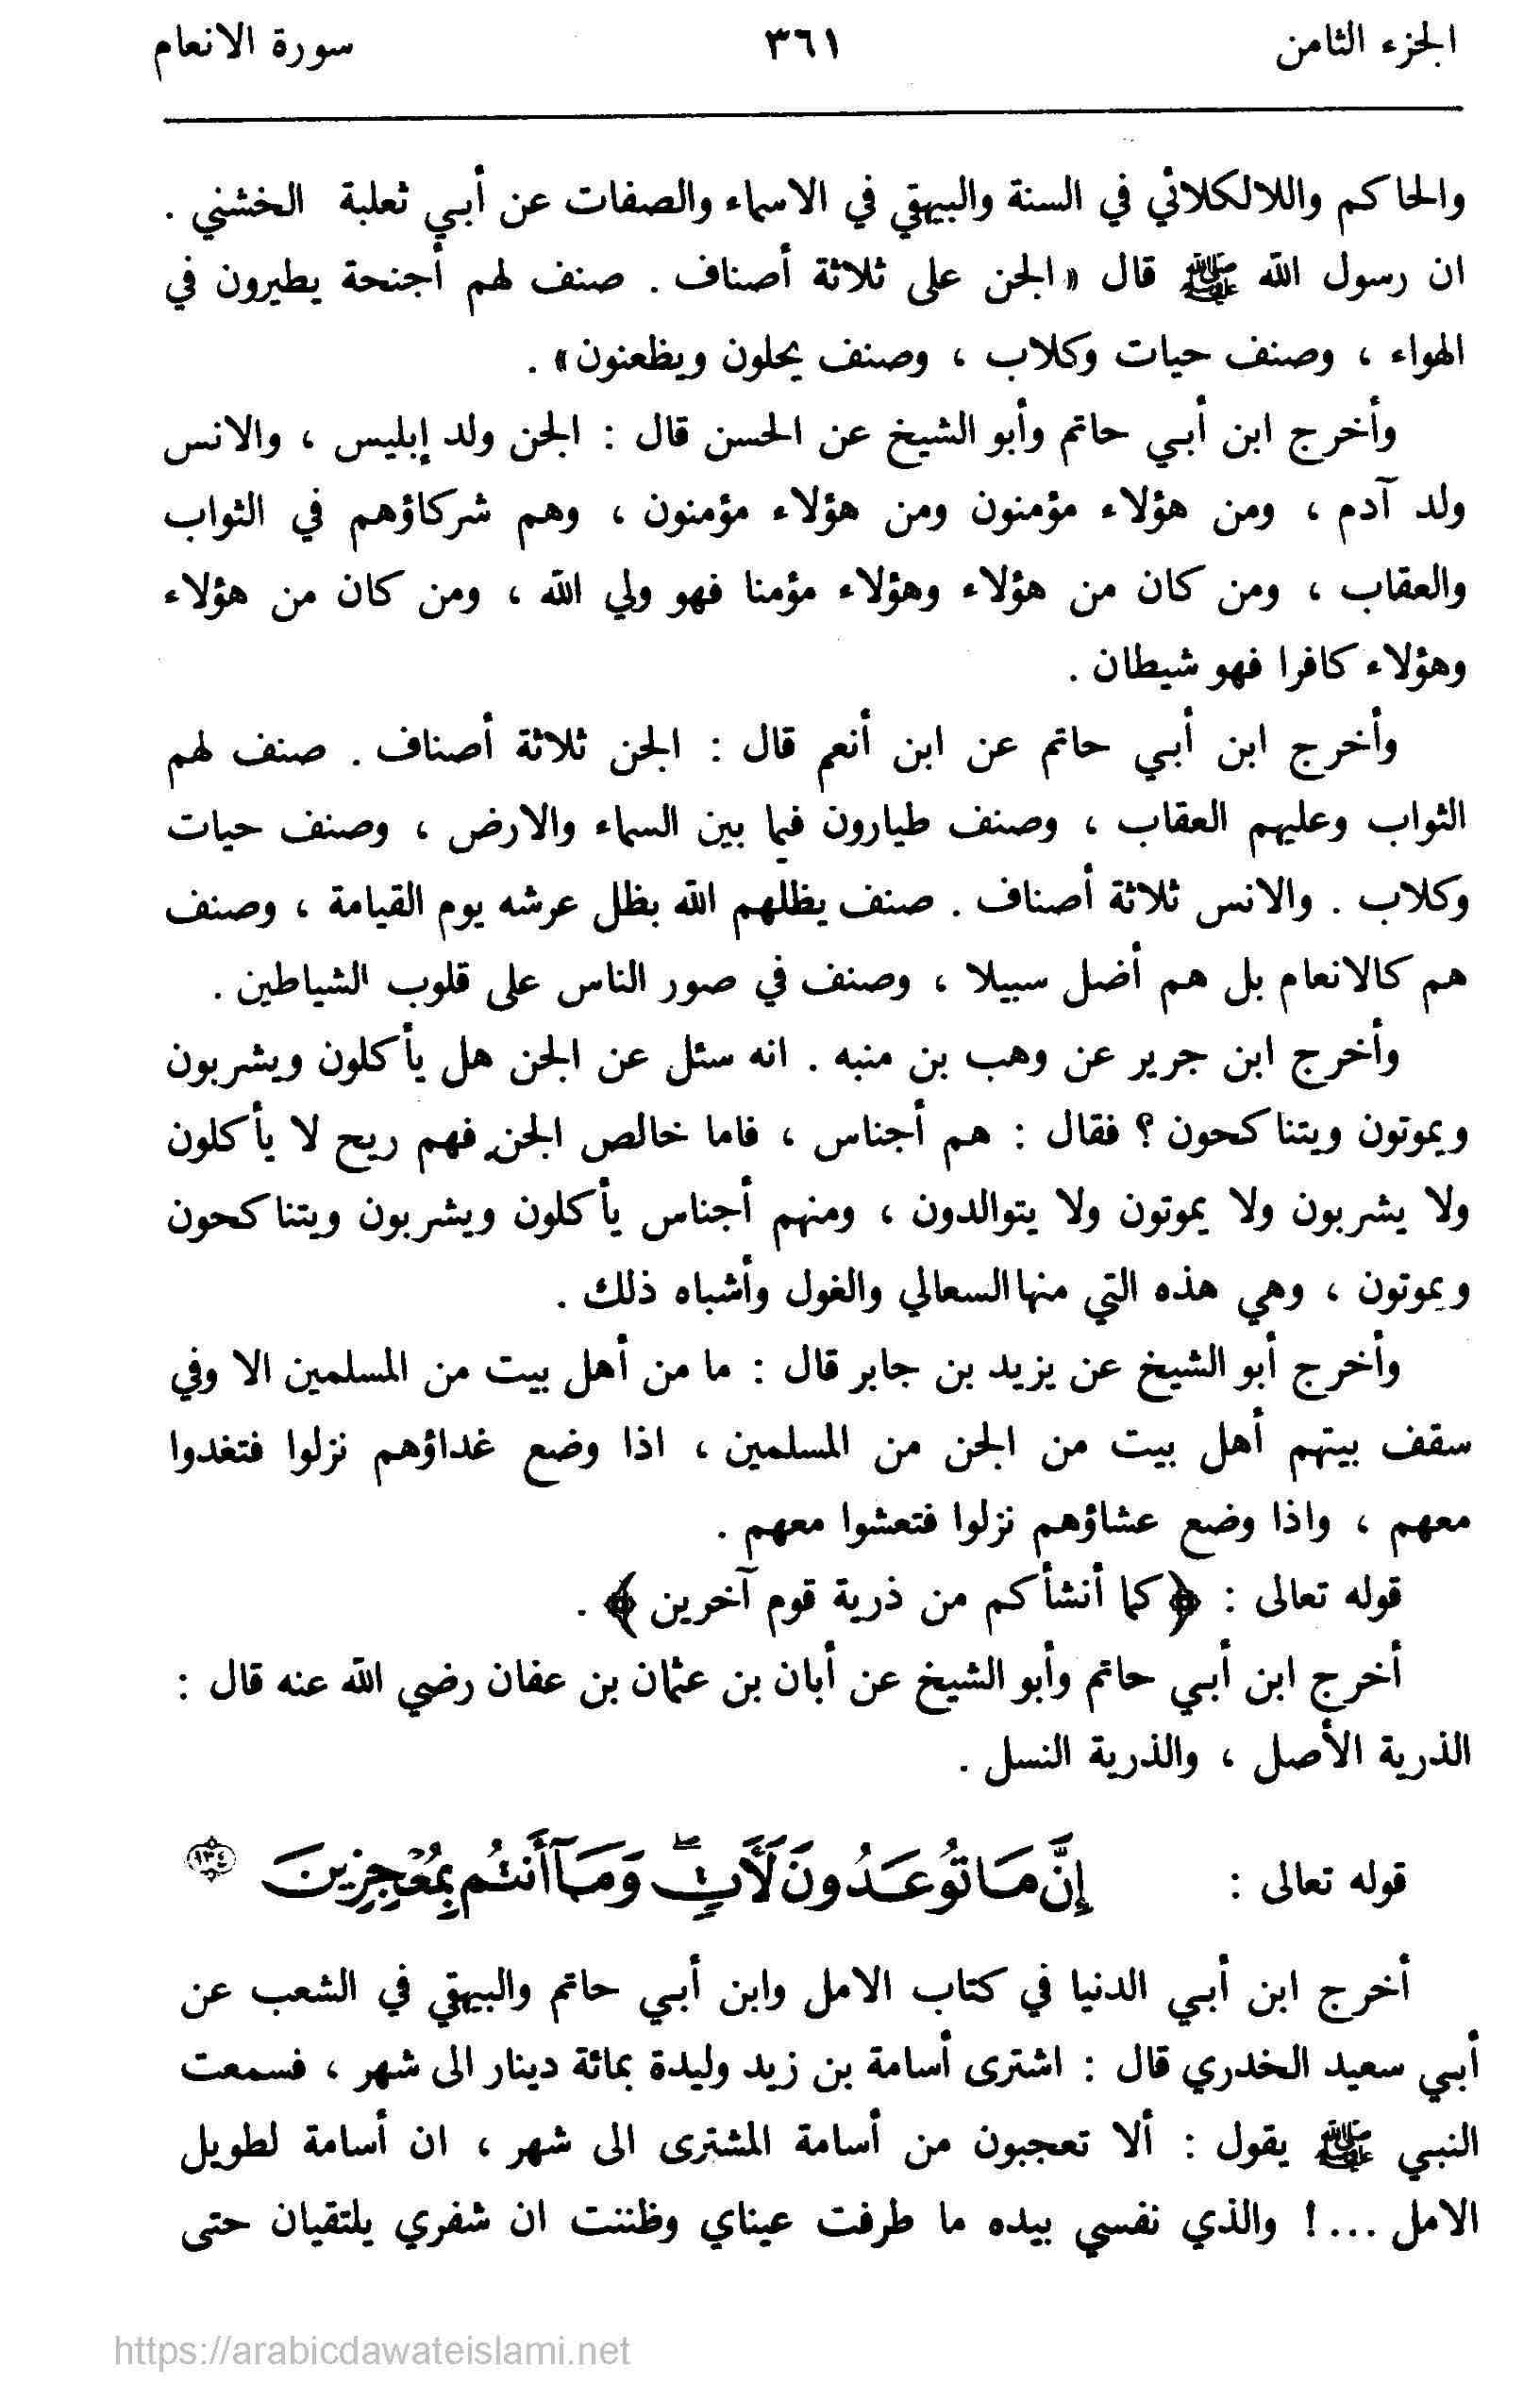 الجزء الثامن ٣٦١ سورة الانعام
والحاكم واللالكلائي في السنة والبيهقي في الاسماء والصفات عن أبي ثعلبة الخشني .
ان رسول الله ﷺ قال «الجن على ثلاثة أصناف . صنف لهم أجنحة يطيرون في
الهواء ، وصنف حيات وكلاب ، وصنف يحلون ويظعنون» .
وأخرج ابن أبي حاتم وأبو الشيخ عن الحسن قال : الجن ولد إبليس ، والانس
ولد آدم ، ومن هؤلاء مؤمنون ومن هؤلاء مؤمنون ، وهم شركاؤهم في الثواب
والعقاب ، ومن كان من هؤلاء وهؤلاء مؤمنا فهو ولي الله ، ومن كان من هؤلاء
وهؤلاء كافرا فهو شيطان .
وأخرج ابن أبي حاتم عن ابن أنعم قال : الجن ثلاثة أصناف . صنف لهم
الثواب وعليهم العقاب ، وصنف طيارون فيما بين السماء والارض ، وصنف حيات
وكلاب . والانس ثلاثة أصناف . صنف يظلهم الله بظل عرشه يوم القيامة ، وصنف
هم كالانعام بل هم أضل سبيلا ، وصنف في صور الناس على قلوب الشياطين .
وأخرج ابن جرير عن وهب بن منبه . انه سئل عن الجن هل يأكلون ويشربون
ويموتون ويتناكحون ؟ فقال : هم أجناس ، فاما خالص الجن فهم ريح لا يأكلون
ولا يشربون ولا يموتون ولا يتوالدون ، ومنهم أجناس يأكلون ويشربون ويتناكحون
ويموتون ، وهي هذه التي منها السعالي والغول وأشباه ذلك .
وأخرج أبو الشيخ عن يزيد بن جابر قال : ما من أهل بيت من المسلمين الا وفي
سقف بيتهم أهل بيت من الجن من المسلمين ، اذا وضع غداؤهم نزلوا فتغدوا
معهم ، واذا وضع عشاؤهم نزلوا فتعشوا معهم .
قوله تعالى : ﴿كما أنشأكم من ذرية قوم آخرين﴾ .
أخرج ابن أبي حاتم وأبو الشيخ عن أبان بن عثمان بن عفان رضي الله عنه قال :
الذرية الأصل ، والذرية النسل .
قوله تعالى : إِنَّ مَا تُوعَدُونَ لَآتٍ ۖ وَمَا أَنتُم بِمُعْجِزِينَ ١٣٤
أخرج ابن أبي الدنيا في كتاب الامل وابن أبي حاتم والبيهقي في الشعب عن
أبي سعيد الخدري قال : اشترى أسامة بن زيد وليدة بمائة دينار الى شهر ، فسمعت
النبي ﷺ يقول : ألا تعجبون من أسامة المشترى الى شهر ، ان أسامة لطويل
الامل ...! والذي نفسي بيده ما طرفت عيناي وظننت ان شفري يلتقيان حتى
https://arabicdawateislami.net